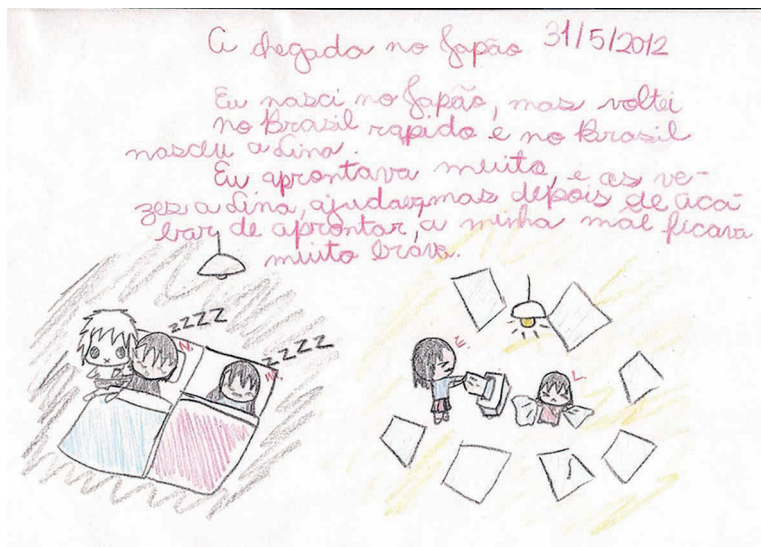 A chegada no Japão 31/5/2012
Eu nasci no Japão, mas voltei
no Brasil rapido e no Brasil
nasceu a Lina.
Eu aprontava muito, e as ve-
zes a Lina, ajudava, mas depois de aca
bar de aprontar, a minha mãe ficava
muito brava.
zzzz
zzzz
N.
N.
E
L